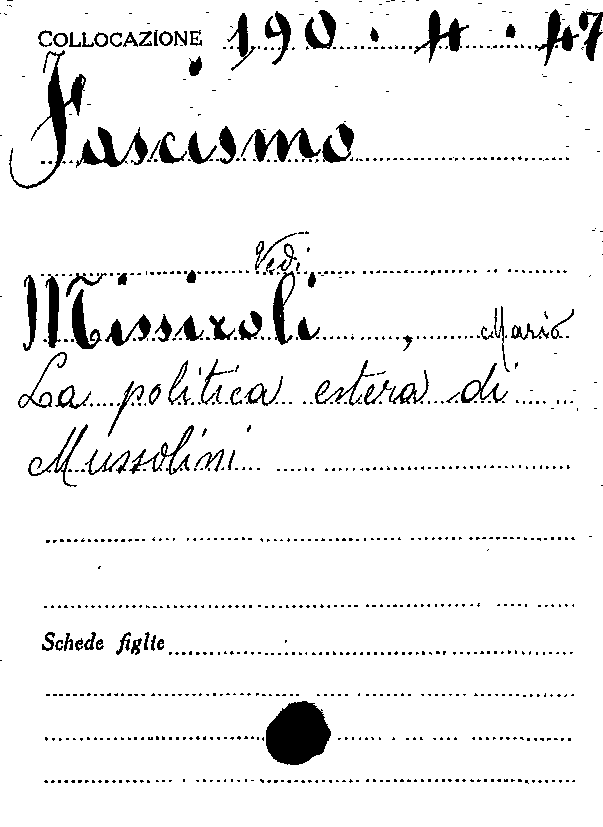 COLLOCAZIONE 190 · 4 · 47
Fascismo
Vedi
Missiroli, Mario
La politica estera di
Mussolini
Schede figlie